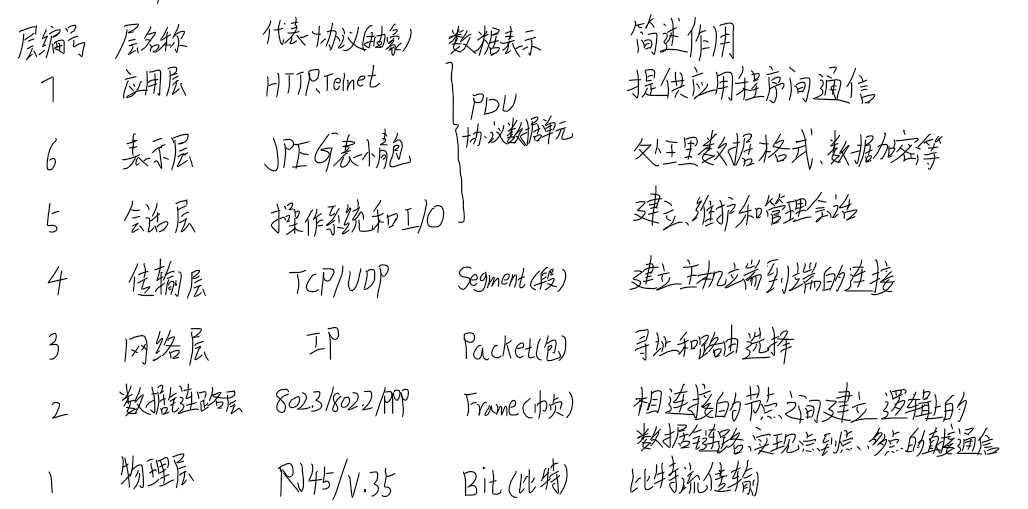 层编号 层名称 代表协议(抽象) 数据表示 简述作用
7 应用层 HTTP、Telnet 提供应用程序间通信
PDU
协议数据单元
6 表示层 JPEG表情包 处理数据格式、数据加密等
5 会话层 操作系统和I/O 建立、维护和管理会话
4 传输层 TCP/UDP Segment(段) 建立主机端到端的连接
3 网络层 IP Packet(包) 寻址和路由选择
2 数据链路层 8023/8022/PPP Frame(帧) 相连接的节点之间建立逻辑上的
数据链路、实现点到点、多点的直接通信
1 物理层 RJ45/V.35 Bit(比特) 比特流传输